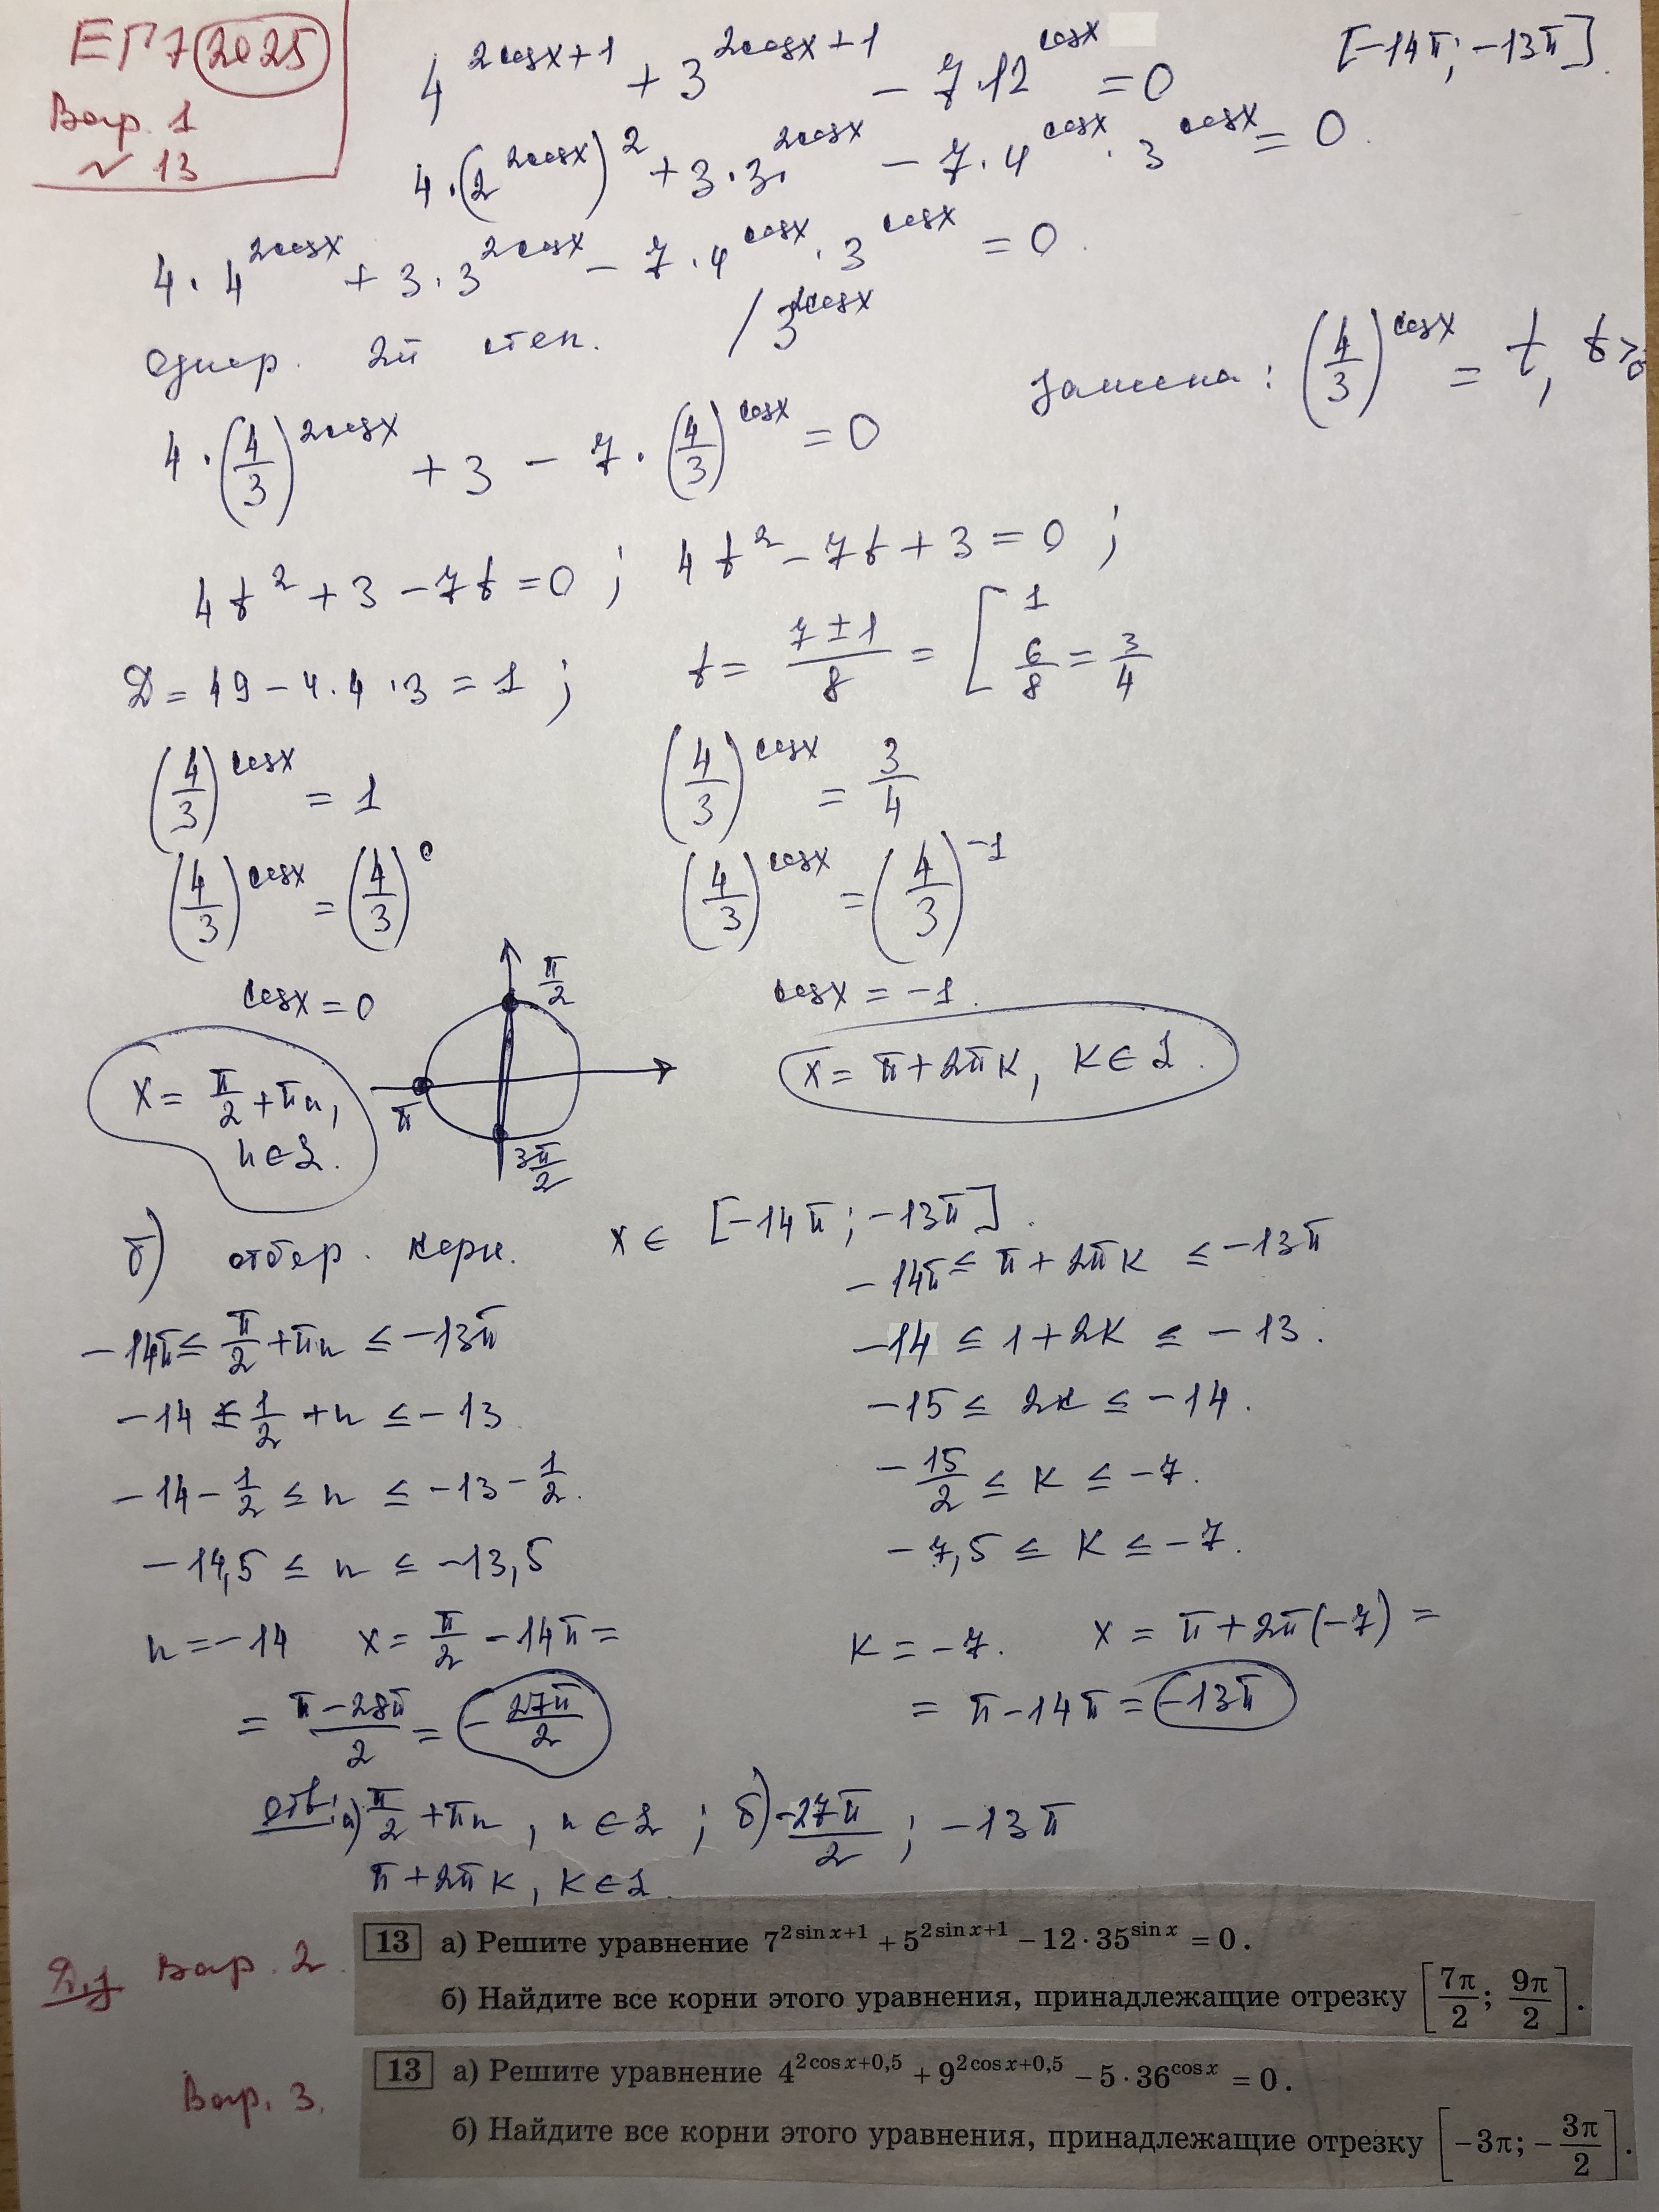 ЕГЭ 2025
Вар. 1
№ 13
4^{2cosx+1} + 3^{2cosx+1} - 7·12^{cosx} = 0 [-14π; -13π].
4·(2^{2cosx})^2 + 3·3^{2cosx} - 7·4^{cosx}·3^{cosx} = 0.
4·4^{2cosx} + 3·3^{2cosx} - 7·4^{cosx}·3^{cosx} = 0.
однор. 2й степ. /3^{2cosx}
Замена: (4/3)^{cosx} = t, t>0
4·(4/3)^{2cosx} + 3 - 7·(4/3)^{cosx} = 0
4t^2 + 3 - 7t = 0; 4t^2 - 7t + 3 = 0;
D = 49 - 4·4·3 = 1; t = (7±1)/8 = [ 1 6/8 = 3/4
(4/3)^{cosx} = 1 (4/3)^{cosx} = 3/4
(4/3)^{cosx} = (4/3)^0 (4/3)^{cosx} = (4/3)^{-1}
cosx = 0 π/2 cosx = -1.
x = π/2 + πn, n∈Z. π 3π/2 x = π + 2πk, k∈Z.
б) отбер. корн. x∈ [-14π; -13π].
-14π ≤ π/2 + πn ≤ -13π -14π ≤ π + 2πk ≤ -13π
-14 ≤ 1/2 + n ≤ -13 -14 ≤ 1 + 2k ≤ -13.
-14 - 1/2 ≤ n ≤ -13 - 1/2. -15 ≤ 2k ≤ -14.
-14,5 ≤ n ≤ -13,5 -15/2 ≤ k ≤ -7.
-7,5 ≤ k ≤ -7.
n = -14 x = π/2 - 14π = k = -7. x = π + 2π(-7) =
= (π - 28π)/2 = -27π/2 = π - 14π = -13π
Отв: а) π/2 + πn, n∈Z; б) -27π/2; -13π
π + 2πk, k∈Z.
Д.з Вар. 2. 13 а) Решите уравнение 7^{2sin x+1} + 5^{2sin x+1} - 12·35^{sin x} = 0.
б) Найдите все корни этого уравнения, принадлежащие отрезку [7π/2; 9π/2].
Вар. 3. 13 а) Решите уравнение 4^{2cos x+0,5} + 9^{2cos x+0,5} - 5·36^{cos x} = 0.
б) Найдите все корни этого уравнения, принадлежащие отрезку [-3π; -3π/2].